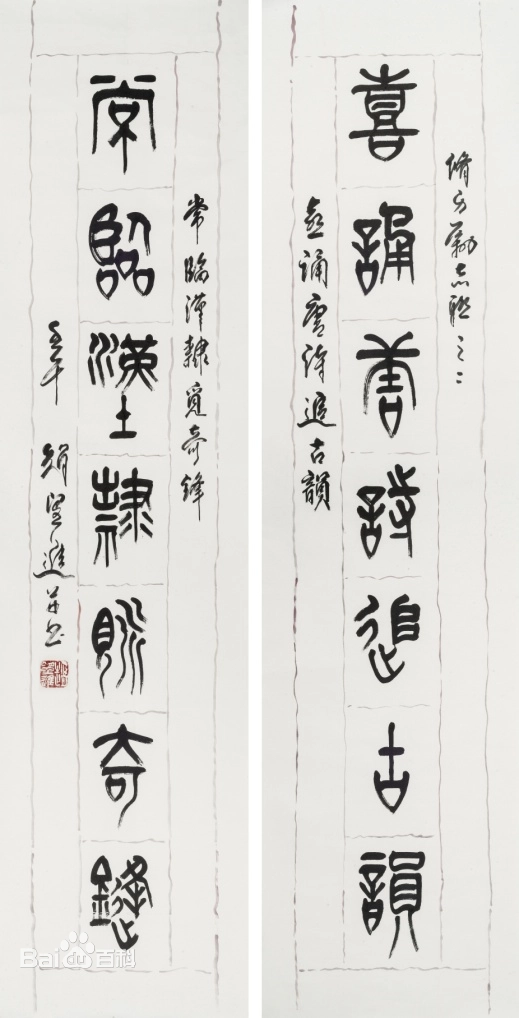 脩身勵志聯之二
喜誦唐詩追古韻
喜誦唐詩追古韻
常臨漢隸覓奇鋒
常臨漢隸覓奇鋒
壬午 望進并書
Baidu百科